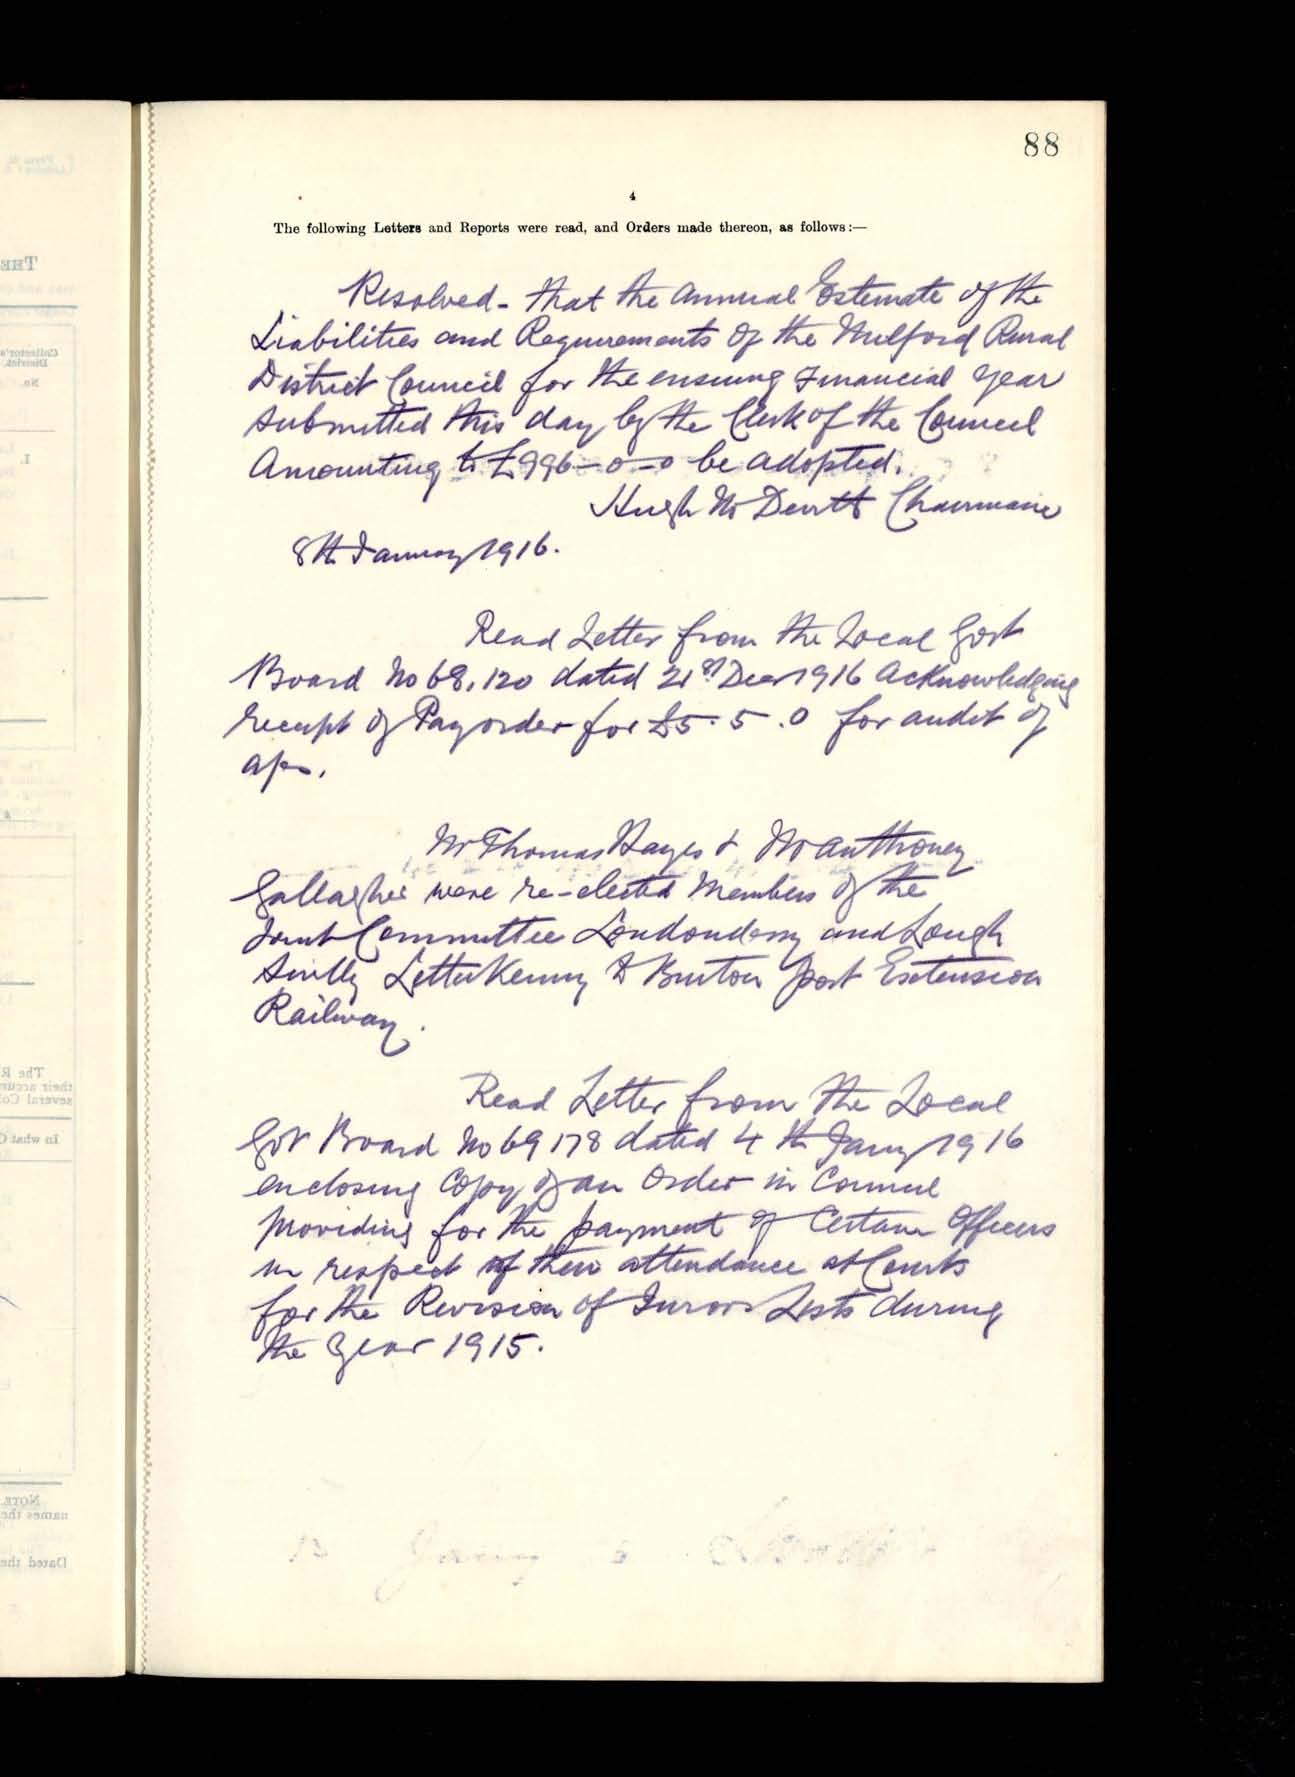 88
4
The following Letters and Reports were read, and Orders made thereon, as follows:—
Resolved - that the Annual Estimate of the
Liabilities and Requirements of the Milford Rural
District Council for the ensuing Financial year
submitted this day by the Clerk of the Council
Amounting to £996-0-0 be adopted.
Hugh McDevitt Chairman
8th January 1916.
Read Letter from the Local Govt
Board No 68,120 dated 21st Decr 1916 Acknowledging
receipt of Pay order for £5.5.0 for audit of
a/cs.
Mr Thomas Hayes & Mr Anthoney
Gallagher were re-elected Members of the
Joint Committee Londonderry and Lough
Swilly Letterkenny & Burton port Extension
Railway.
Read Letter from the Local
Gov Board No 69178 dated 4th Jany 1916
enclosing Copy of an Order in Council
providing for the payment of Certain Officers
in respect of their attendance at Courts
for the Revision of Jurors Lists during
the year 1915.